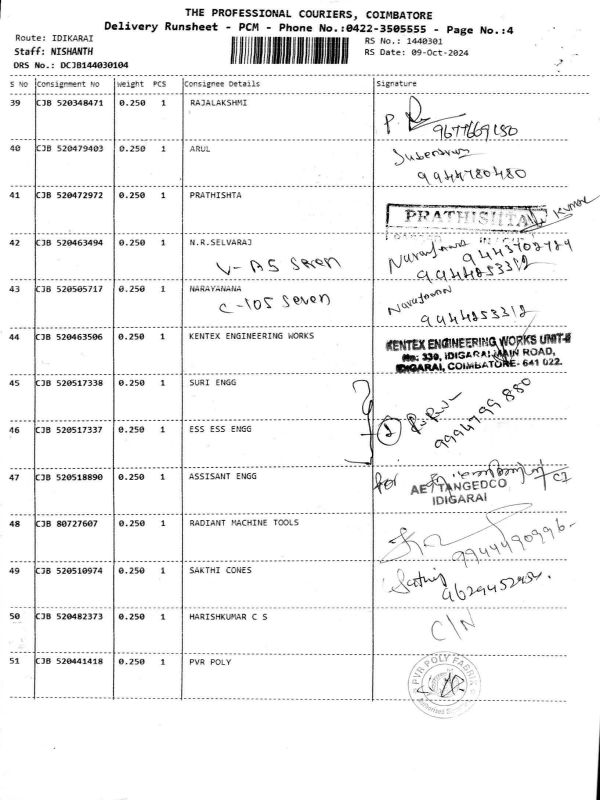 THE PROFESSIONAL COURIERS, COIMBATORE
Delivery Runsheet - PCM - Phone No.:0422-3505555 - Page No.:4
Route: IDIKARAI
RS No.: 1440301
Staff: NISHANTH
RS Date: 09-Oct-2024
DRS No.: DCJB144030104
S No Consignment No Weight PCS Consignee Details Signature
39 CJB 520348471 0.250 1 RAJALAKSHMI
9677669180
40 CJB 520479403 0.250 1 ARUL
9944780480
41 CJB 520472972 0.250 1 PRATHISHTA
PRATHISHTA
Kumar
42 CJB 520463494 0.250 1 N.R.SELVARAJ
V-A5 Seven
9944853312
43 CJB 520505717 0.250 1 NARAYANANA
C-105 Seven
9944853312
44 CJB 520463506 0.250 1 KENTEX ENGINEERING WORKS
KENTEX ENGINEERING WORKS UNIT-II
No: 339, IDIGARAI MAIN ROAD,
IDIGARAI, COIMBATORE- 641 022.
45 CJB 520517338 0.250 1 SURI ENGG
46 CJB 520517337 0.250 1 ESS ESS ENGG
2
9994799880
47 CJB 520518890 0.250 1 ASSISANT ENGG
for
AE / TANGEDCO
IDIGARAI
48 CJB 80727607 0.250 1 RADIANT MACHINE TOOLS
9944490996
49 CJB 520510974 0.250 1 SAKTHI CONES
50 CJB 520482373 0.250 1 HARISHKUMAR C S
C/N
51 CJB 520441418 0.250 1 PVR POLY
PVR POLY FABRIK